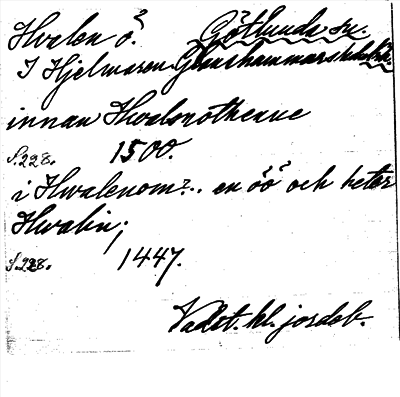 Hvalen ö? Götlunda sn.
I Hjelmaren. Glanshammars hd
innan Hwalsnothenne
S. 228. 1500.
i Hwalenom?.. en öö? och heter
Hwalin;
S. 228. 1447.
Vadst. kl. jordeb.